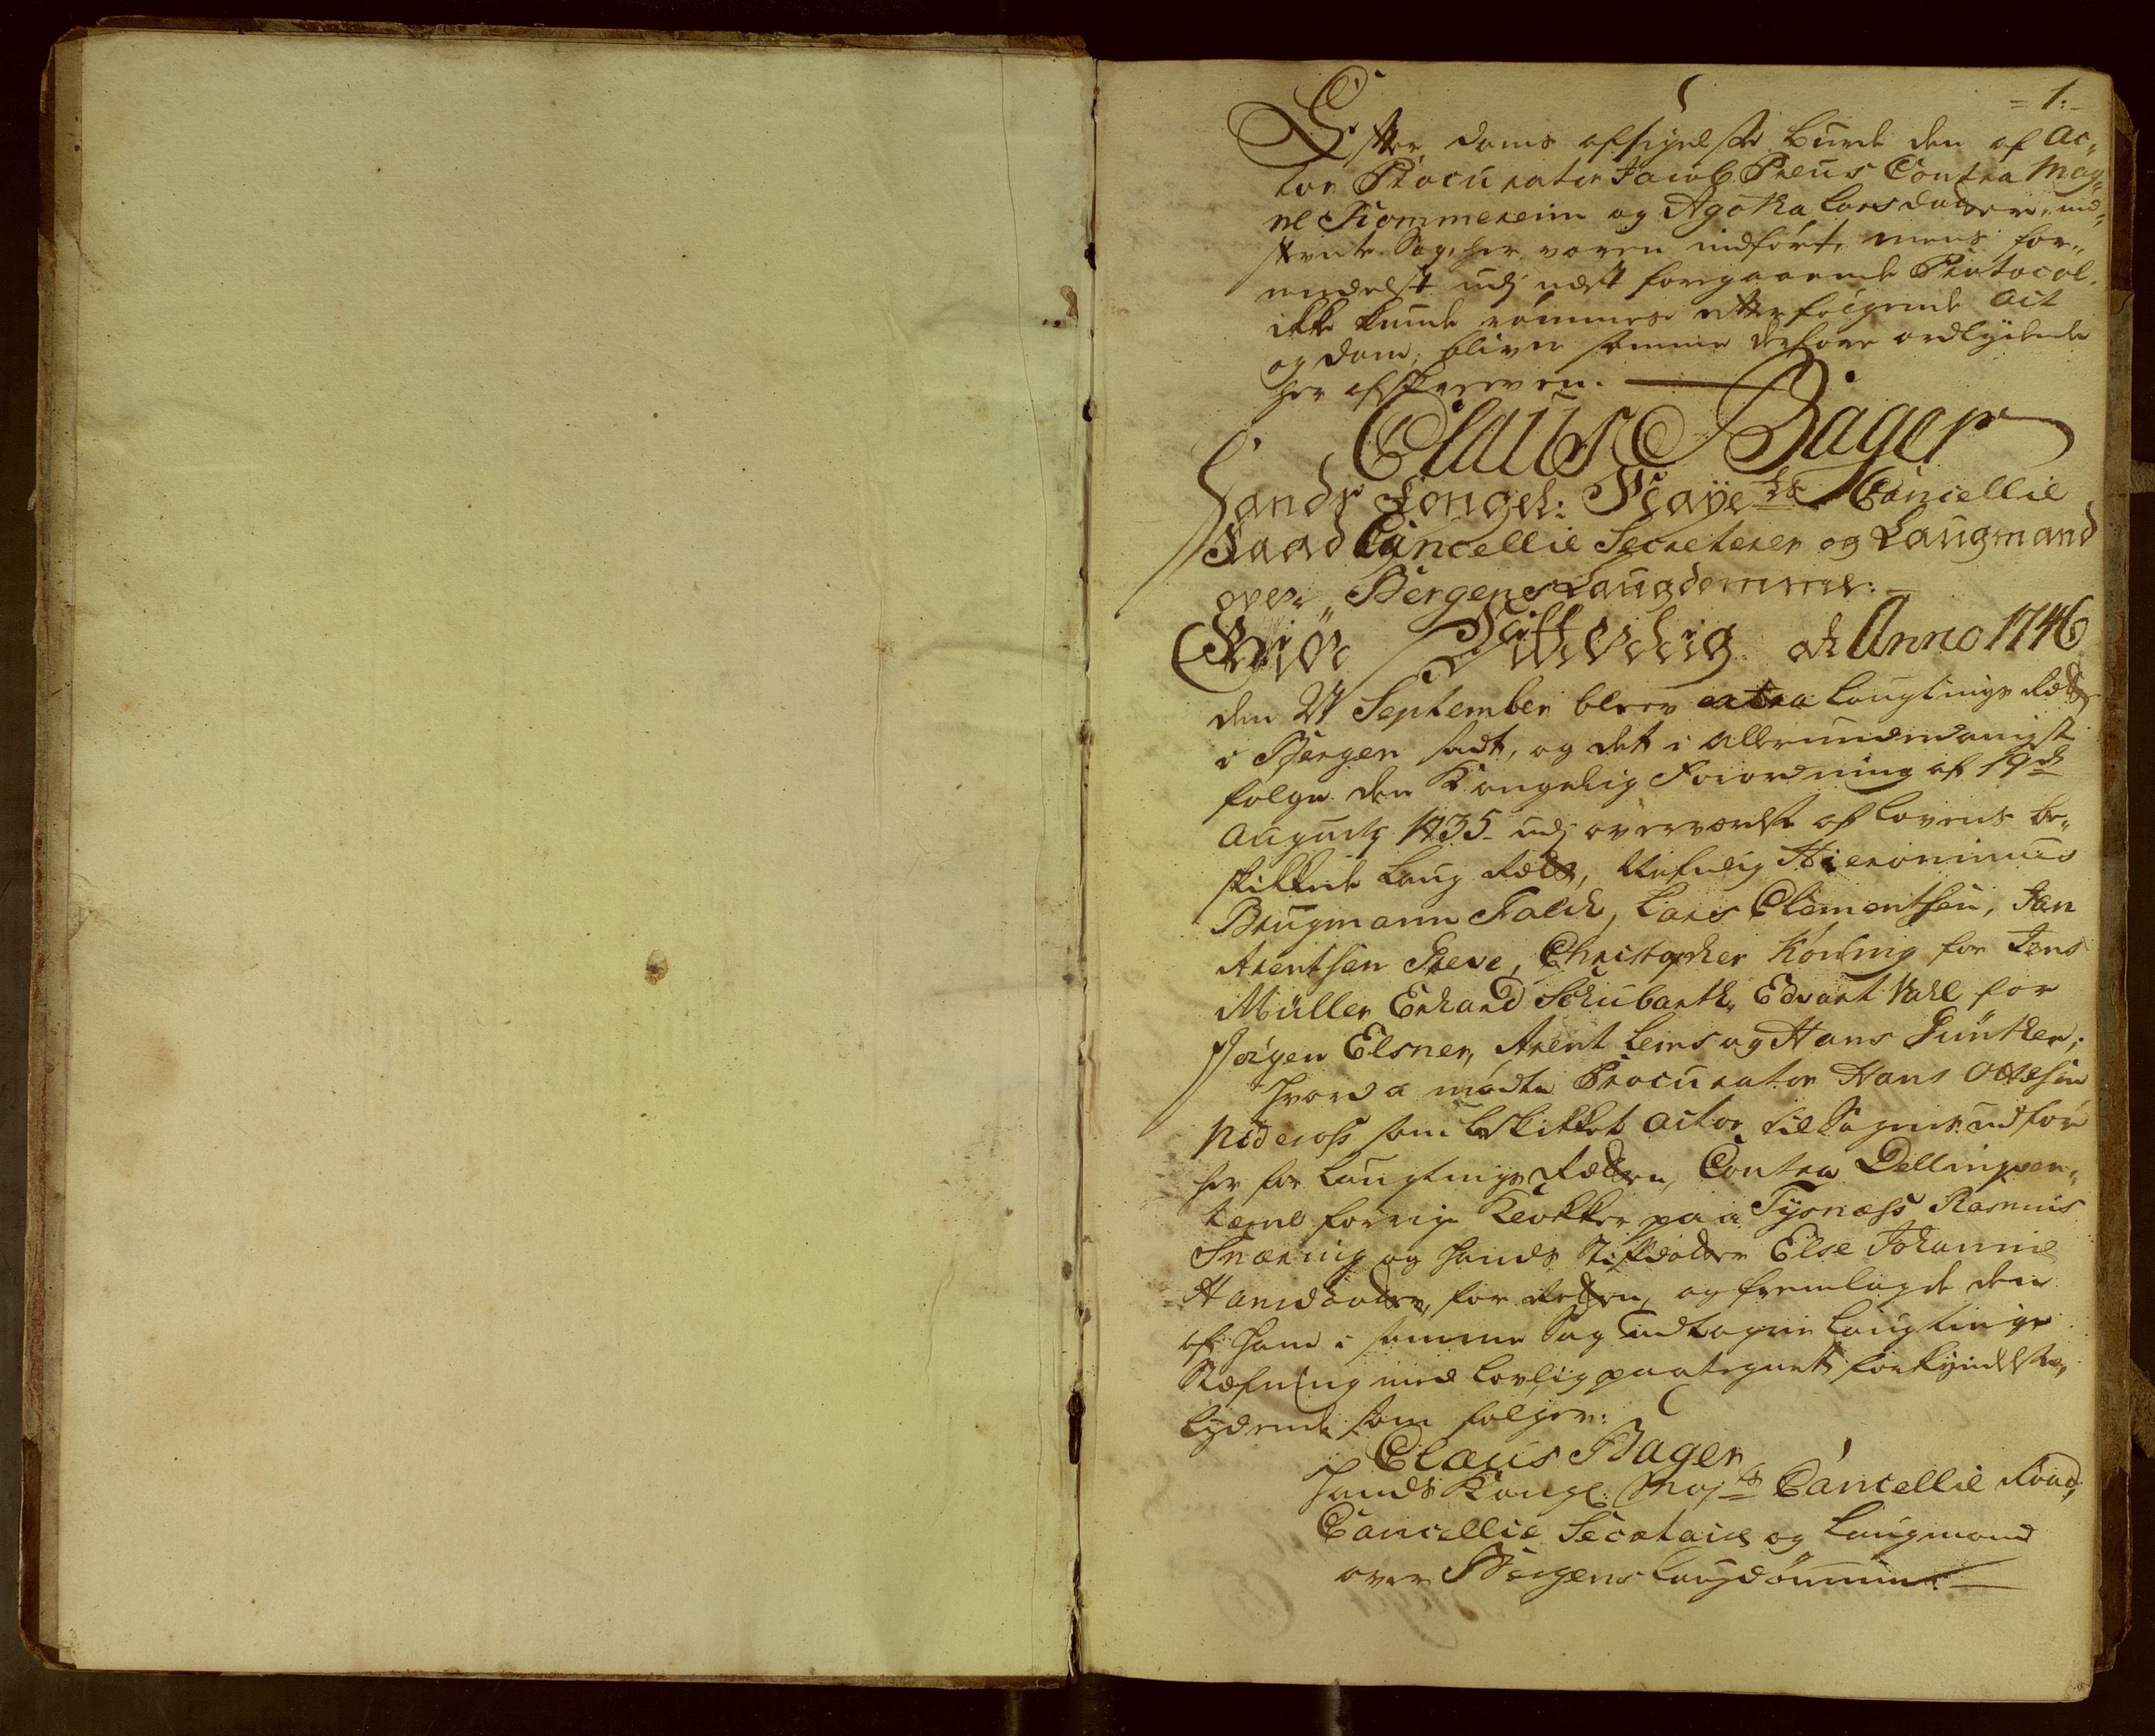 = 1:-
Effter doms afsigelse burde den af Ac„
tor Procurator Jacob Preus Contra Mag„
ne Kommereim og Agatha Larsdatter, ind„
stevnte Sag, her voren indført, mens for„
medelst udj næst foregaaende Protocol,
ikke kunde rømmes efterfølgende Act
og dom, bliver samme derfore ordlydende
her afskreeven.
Claus Bager
Hands Kongel: Mayets Cancellie
Raad Cancellie Secreterer og Laugmand
over Bergens Laugdømme:
Giør Vitterlig at Anno 1746
den 27 September blev extra Laugtings Rætt
i Bergen sadt, og det i allerunderdanigst
følge den Kongelig Forordning af 19de
Augusti 1735 udj overværelse af Lovens be„
skikkede Laug Rætt, Nafnlig Hieronimus
Brugmann Falch, Lars Clementsen, Jan
Arentsen Greve, Christopher Køning for Jens
Müller, Erhard Schubarth, Edvart Vahl for
Jørgen Elsner, Arent Lems og Hans Günther;
hvorda mødte Procurator Hans Ottesen
Nideross som beskikket Actor til Sagens udfør
her for Laugtings Rætten, Contra Dellinqven„
terne forrige Klokker paa Tysnæss Rasmus
Snæring og hands Stifdotter Else Johanne
Hansdotter, for Retten, og fremlagde den
af ham i samme Sag udtagne Laugtings
Stæfning med lovlig paategnet forkyndelse,
lydende som følger:
Claus Bager
Hands Kongl: Majts Cancellie Raad,
Cancellie Secretaire og Laugmand
over Bergens Laugdømme: